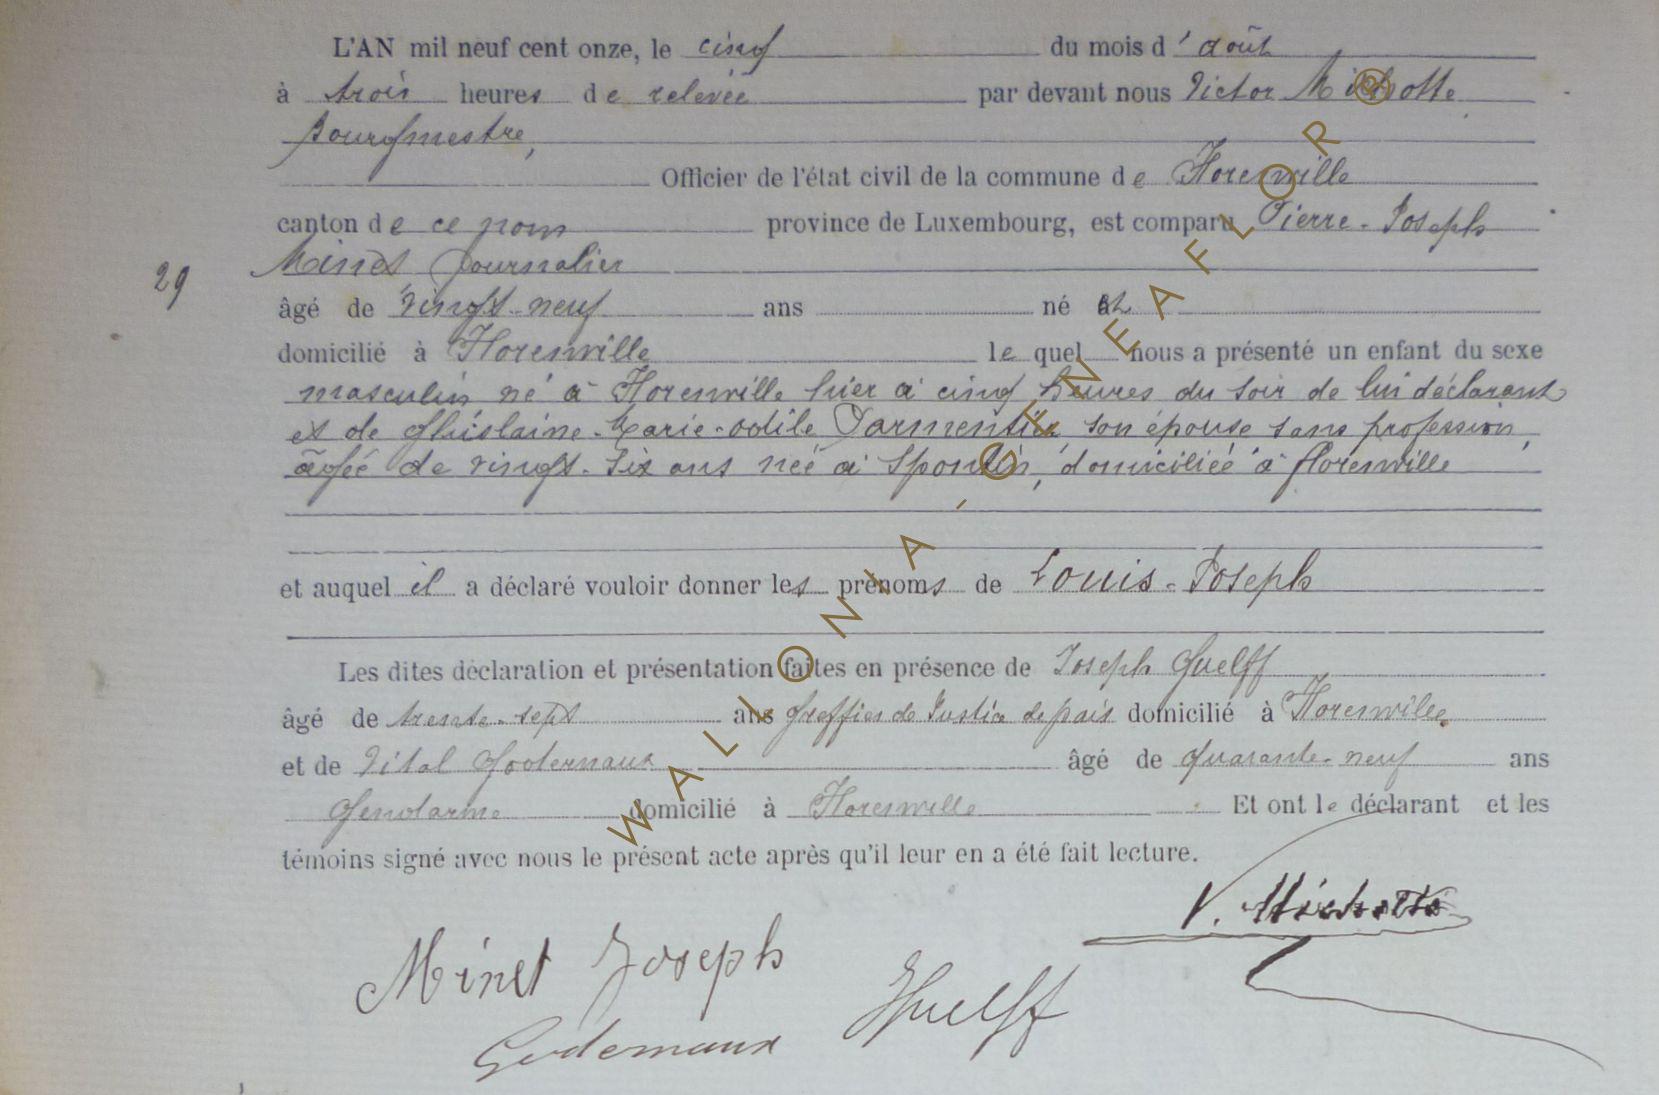 L'AN mil neuf cent onze, le cinq du mois d'août
à trois heures de relevée par devant nous Victor Michotte
bourgmestre,
Officier de l'état civil de la commune de Florenville
canton de ce nom province de Luxembourg, est comparu Pierre-Joseph
Minet journalier
29
âgé de vingt-neuf ans né à
domicilié à Florenville lequel nous a présenté un enfant du sexe
masculin né à Florenville hier à cinq heures du soir de lui déclarant
et de Ghislaine-Marie-Odile Parmentier son épouse sans profession,
âgée de vingt-six ans née à Spontin, domiciliée à florenville
et auquel il a déclaré vouloir donner les prénoms de Louis-Joseph
Les dites déclaration et présentation faites en présence de Joseph Guelff
âgé de trente-sept ans greffier de Justice de paix domicilié à Florenville
et de Vital Godernaux âgé de quarante-neuf ans
Gendarme domicilié à Florenville Et ont le déclarant et les
témoins signé avec nous le présent acte après qu'il leur en a été fait lecture.
V. Michotte
Minet Joseph
Guelff
Godernaux
WALLONIA-GENEAFLOR®